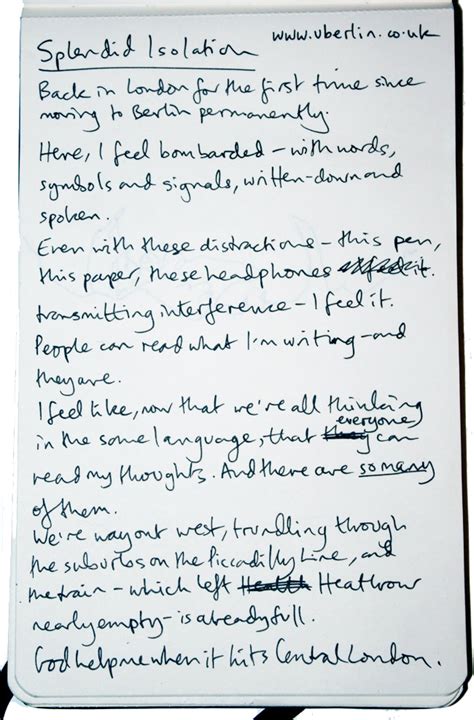 Splendid Isolation www.uberlin.co.uk
Back in London for the first time since
moving to Berlin permanently.
Here, I feel bombarded – with words,
symbols and signals, written-down and
spoken.
Even with these distractions – this pen,
this paper, these headphones
transmitting interference – I feel it.
People can read what I'm writing – and
they are.
I feel like, now that we're all thinking
in the same language, that they everyone can
read my thoughts. And there are so many
of them.
We're way out west, trundling through
the suburbs on the Piccadilly Line, and
the train – which left Heathrow
nearly empty – is already full.
God help me when it hits Central London.